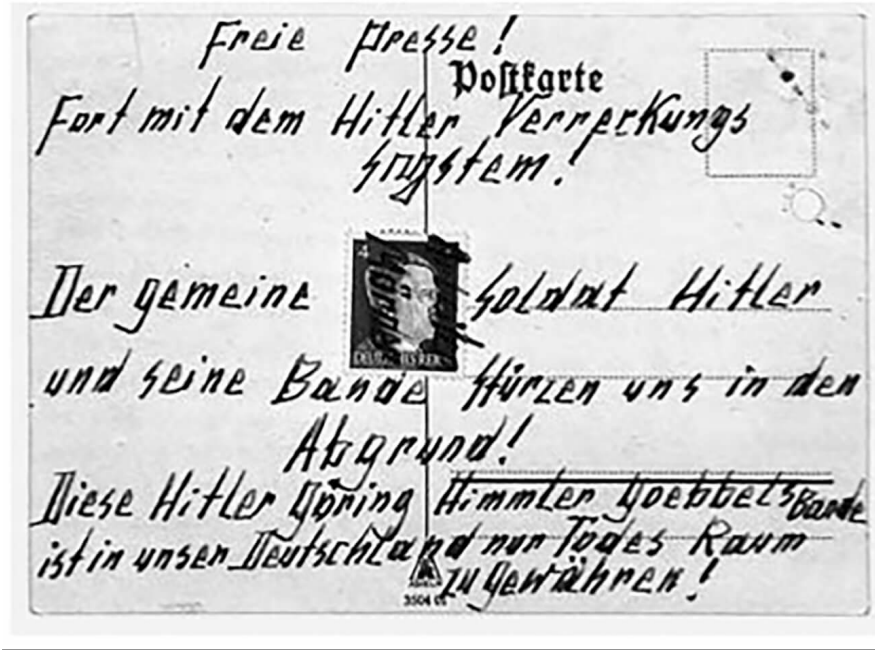 Freie Presse!
Postkarte
Fort mit dem Hitler Verrerkungs
system!
Der gemeine Soldat Hitler
und seine Bande stürzen uns in den
Abgrund!
Diese Hitler Göring Himmler Goebbels Bande
ist in unser Deutschland nur Todes Raum
zu gewähren!
3504